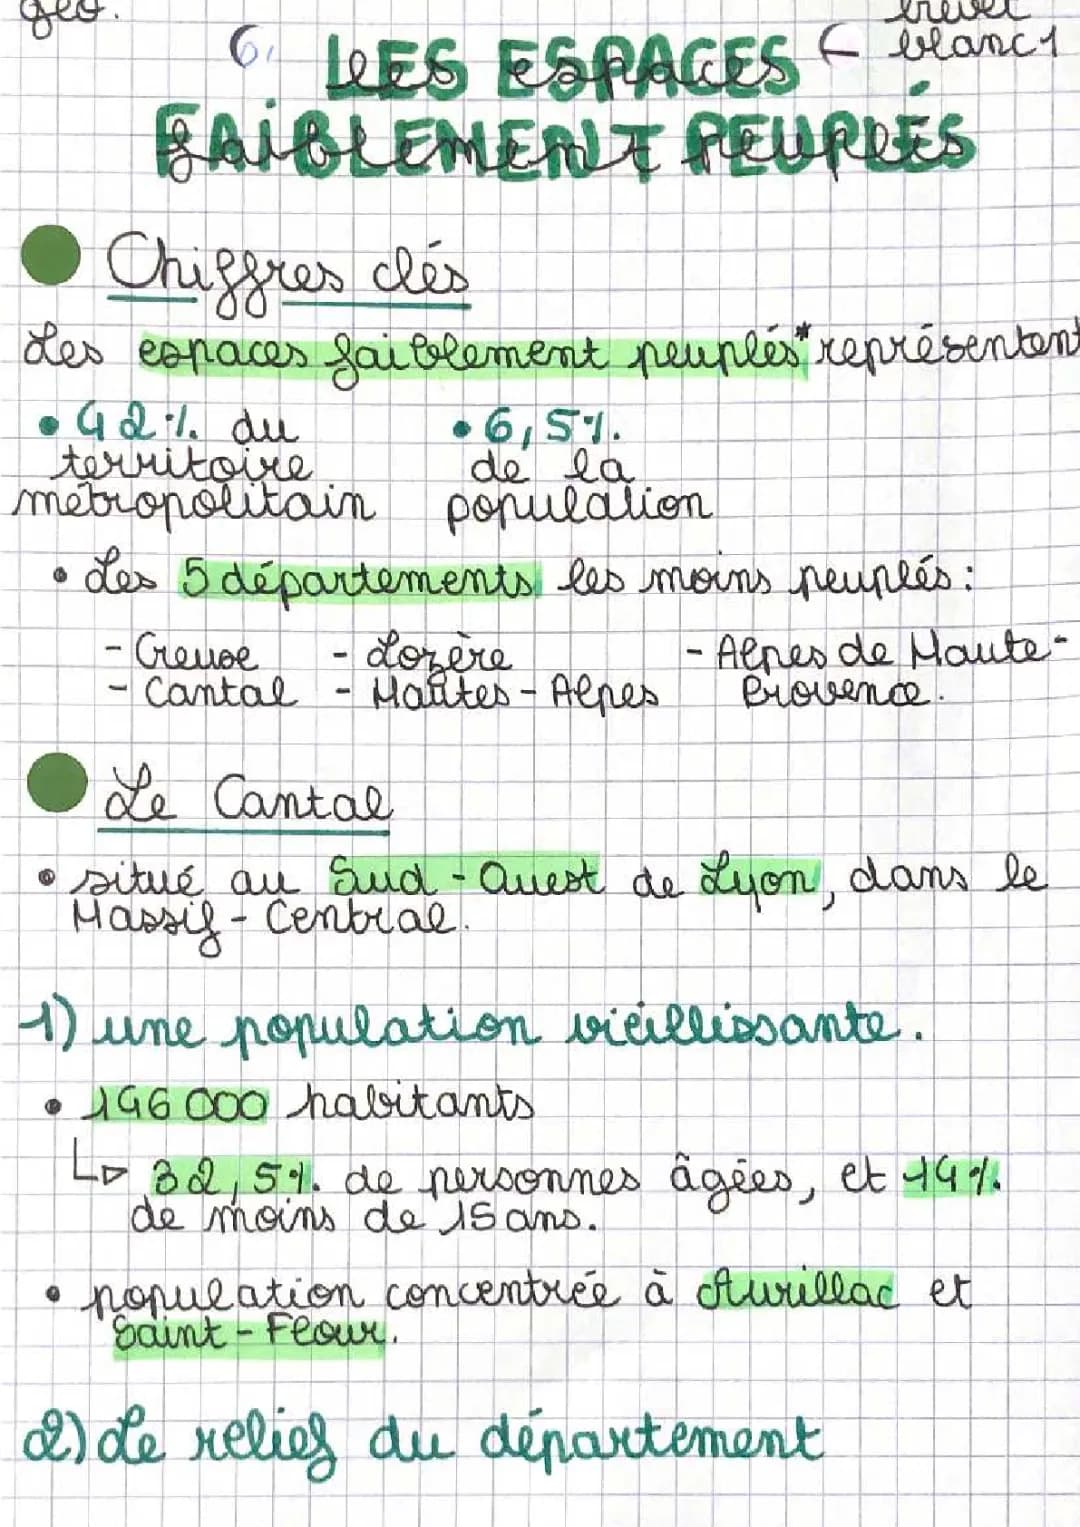 géo.
brevet
6. LES ESPACES ← blanc 1
FAIBLEMENT PEUPLÉS
Chiffres clés
Les espaces faiblement peuplés* représentent
• 42% du • 6,5%
territoire de la
métropolitain population
• Les 5 départements les moins peuplés :
- Creuse - Lozère - Alpes de Haute-
- Cantal - Hautes-Alpes Provence.
Le Cantal
• situé au Sud-Ouest de Lyon, dans le
Massif-Central.
1) une population vieillissante.
• 146 000 habitants
↳ 32,5% de personnes âgées, et 14%
de moins de 15 ans.
• population concentrée à Aurillac et
Saint-Flour.
2) Le relief du département